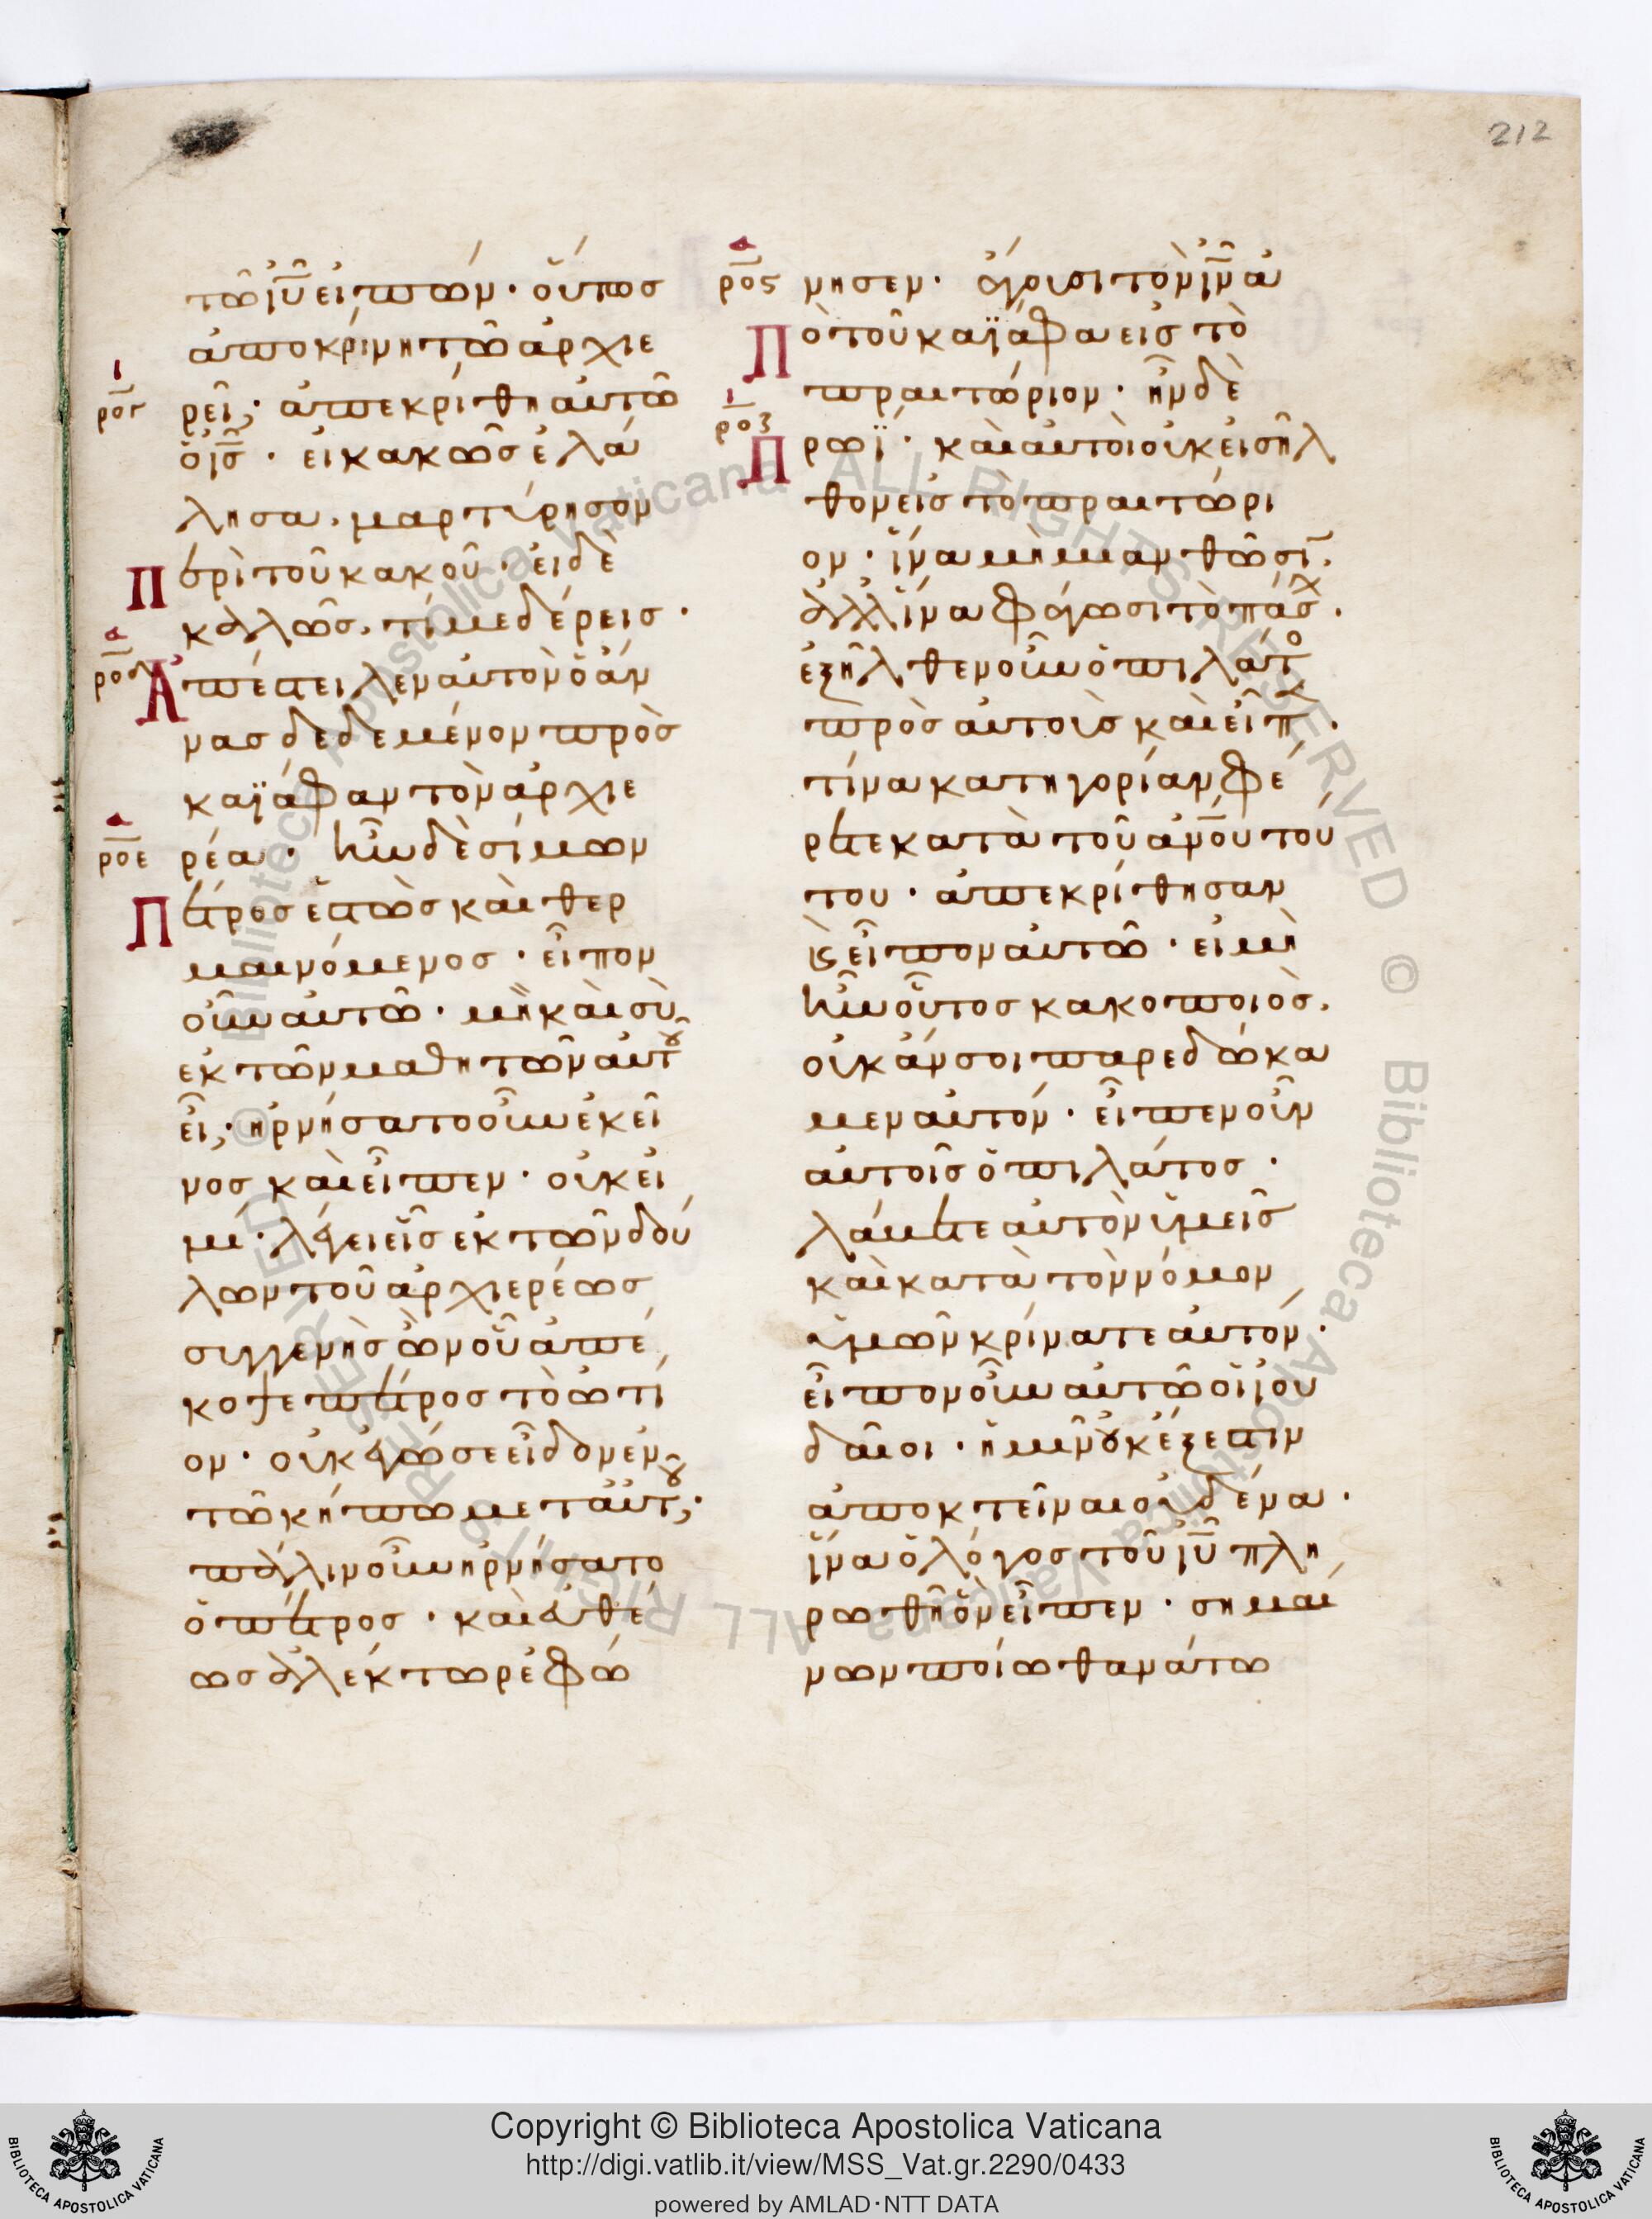 212
τῶ ἰυ̅ εἰπών· οὕτωσ
ἀποκρίνη τῶ ἀρχιε
ρογ
ρεῖ; ἀπεκρίθη αὐτῶ
ὁ ἰσ̅· εἰ κακῶσ ἐλά
λησα, μαρτύρησον
Περὶ τοῦ κακοῦ· εἰ δὲ
καλῶσ, τί με δέρεισ·
ροδ
Ἀπέστειλεν αὐτὸν ὁ ἄν
νασ δεδεμένον πρὸσ
καϊάφαν τὸν ἀρχιε
ροε
ρέα· ἦν δὲ σίμων
Πέτροσ ἑστὼσ καὶ θερ
μαινόμενοσ· εἶπον
οὖν αὐτῶ· μὴ καὶ σὺ
ἐκ τῶν μαθητῶν αὐτοῦ
εἶ; ἠρνήσατο οὖν ἐκεῖ
νοσ καὶ εἶπεν· οὐκ εἰ
μί· λέγει εἷσ ἐκ τῶν δού
λων τοῦ ἀρχιερέωσ
συγγενὴσ ὢν οὗ ἀπέ
κοψε πέτροσ τὸ ὠτί
ον· οὐκ ἐγώ σε εἶδον ἐν
τῶ κήπω μετ' αὐτοῦ;
πάλιν οὖν ἠρνήσατο
ὁ πέτροσ· καὶ εὐθέ
ωσ ἀλέκτωρ ἐφώ
ρος
νησεν· ἄγουσι τὸν ἰν̅ ἀ
Πὸ τοῦ καϊάφα εἰσ τὸ
πραιτώριον· ἦν δὲ
ροζ
Πρωΐ· καὶ αὐτοὶ οὐκ εἰσῆλ
θον εἰσ τὸ πραιτώρι
ον· ἵνα μὴ μιανθῶσιν,
ἀλλ' ἵνα φάγωσι τὸ πάσχ·
ἐξῆλθεν οὖν ὁ πιλάτο
πρὸσ αὐτοὺσ καὶ εἶπ·
τίνα κατηγορίαν φέ
ρετε κατὰ τοῦ ἀν̅ου τού
του· ἀπεκρίθησαν
κ(αὶ) εἶπον αὐτῶ· εἰ μὴ
ἦν οὗτοσ κακοποιὸσ,
οὐκ ἄν σοι παρεδώκα
μεν αὐτόν· εἶπεν οὖν
αὐτοῖσ ὁ πιλάτοσ·
λάβετε αὐτὸν ὑμεῖσ
καὶ κατὰ τὸν νόμον
ὑμῶν κρίνατε αὐτόν·
εἶπον οὖν αὐτῶ οἱ ἰου
δαῖοι· ἡμῖν οὐκ ἔξεστιν
ἀποκτεῖναι οὐδένα·
ἵνα ὁ λόγοσ τοῦ ἰυ̅ πλη
ρωθῆ ὃν εἶπεν· σημαί
νων ποίω θανάτω
Copyright © Biblioteca Apostolica Vaticana
http://digi.vatlib.it/view/MSS_Vat.gr.2290/0433
powered by AMLAD·NTT DATA